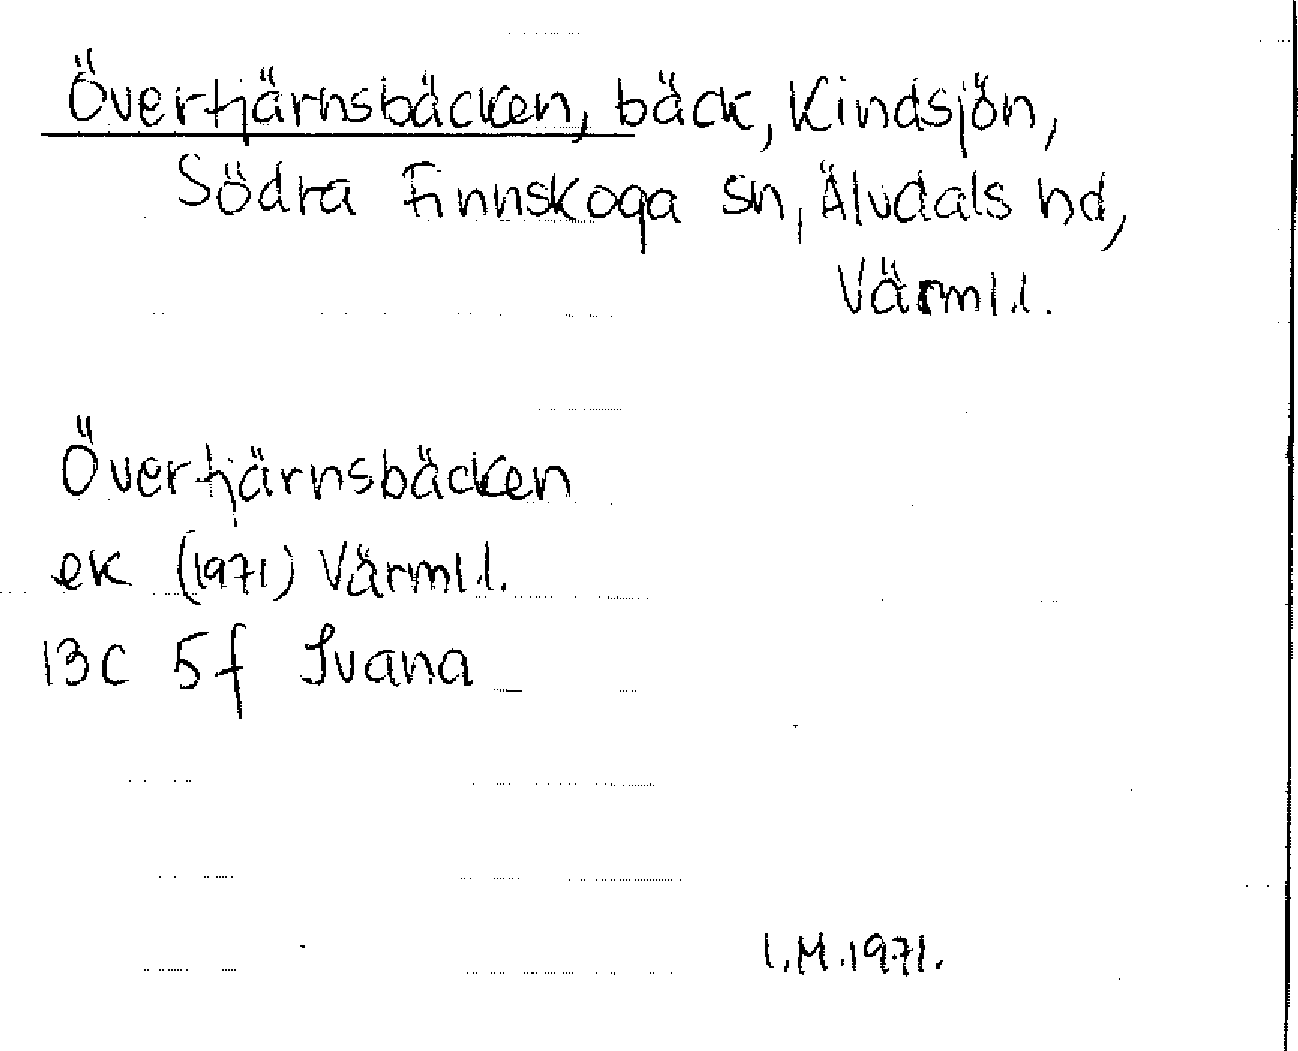 Övertjärnsbäcken, bäck, Kindsjön,
Södra Finnskoga sn, Älvdals hd,
Värml.l.
Övertjärnsbäcken
ek (1971) Värml.l.
13C 5f Ivana
I.M.1971.